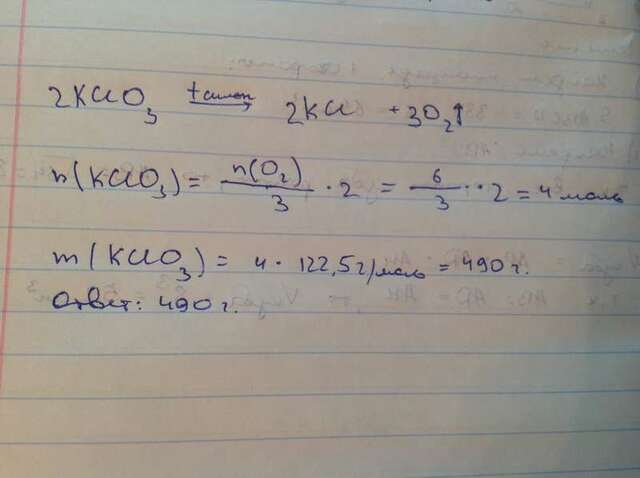 2KClO₃ t катал → 2KCl + 3O₂↑
n(KClO₃) = n(O₂)/3 · 2 = 6/3 · 2 = 4 моль
m(KClO₃) = 4 · 122,5 г/моль = 490 г.
Ответ: 490 г.